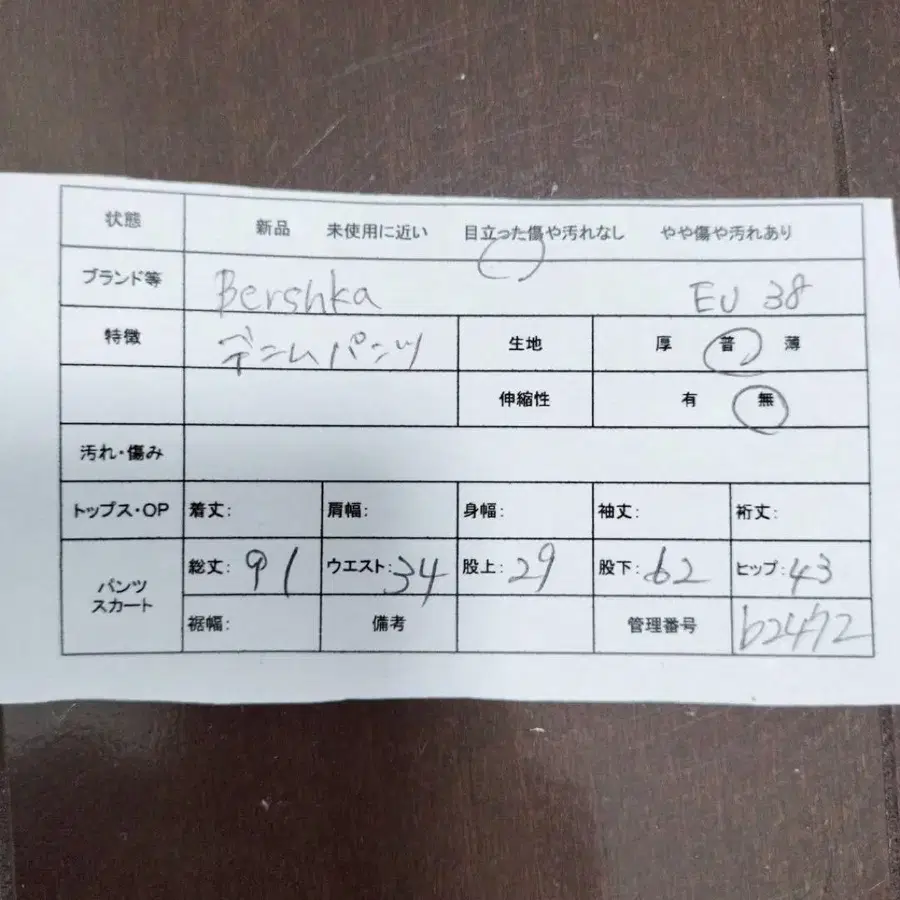 状態 新品 未使用に近い 目立った傷や汚れなし やや傷や汚れあり
ブランド等 Bershka EU 38
特徴 デニムパンツ 生地 厚 普 薄
伸縮性 有 無
汚れ・傷み
トップス・OP 着丈: 肩幅: 身幅: 袖丈: 裄丈:
パンツ スカート 総丈: 91 ウエスト: 34 股上: 29 股下: 62 ヒップ: 43
裾幅: 備考 管理番号 b2472